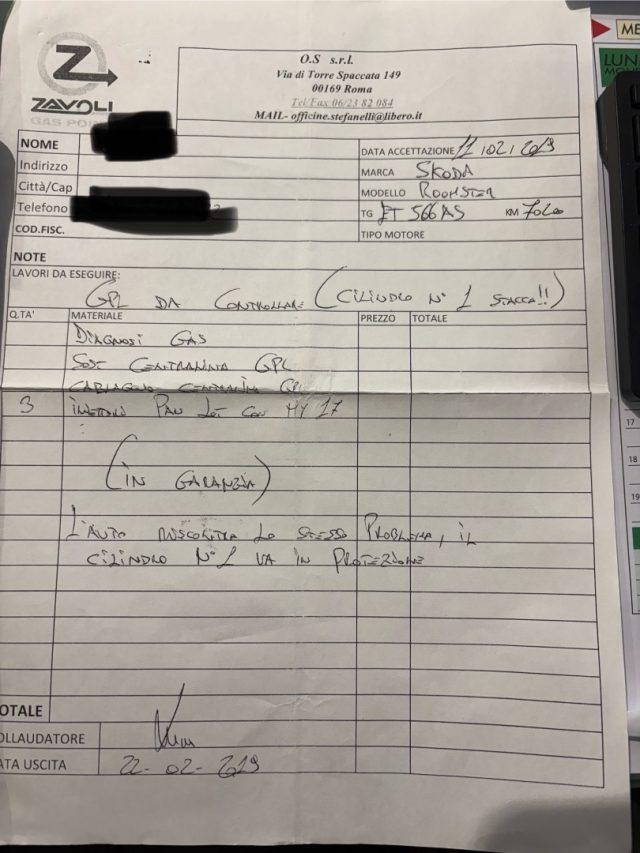 ZAVOLI
GAS POINT
O.S s.r.l.
Via di Torre Spaccata 149
00169 Roma
Tel/Fax 06/23 82 084
MAIL- officine.stefanelli@libero.it
NOME
Indirizzo
Città/Cap
Telefono
COD.FISC.
DATA ACCETTAZIONE 11/02/2019
MARCA SKODA
MODELLO ROOMSTER
TG ET 566AS KM
TIPO MOTORE
NOTE
LAVORI DA ESEGUIRE:
GPL DA CONTROLLARE (CILINDRO N° 1 STACCA!!)
Q.TA' MATERIALE PREZZO TOTALE
DIAGNOSI GAS
SOST CENTRALINA GPL
CABLAGGIO CENTRALINA GPL
3 MY 17
(IN GARANZIA)
L'AUTO RISCONTRA LO STESSO PROBLEMA, IL
CILINDRO N° 1 VA IN PROTEZIONE
OTALE
OLLAUDATORE
ATA USCITA 22-02-2019
ME
LUNE
17
18
19